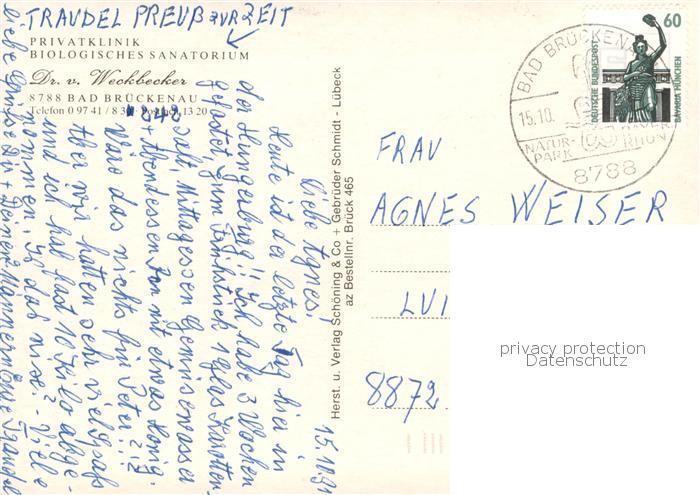 TRAUDEL PREUß ZUR ZEIT
PRIVATKLINIK
BIOLOGISCHES SANATORIUM
Dr. v. Weckbecker
8788 BAD BRÜCKENAU
Telefon 0 97 41 / 8 Postfach 13 20
842
15.10.91
Liebe Agnes!
Heute ist der letzte Tag hier in
der Hungerburg!! Ich habe 3 Wochen
gefastet, zum Frühstück 1 Glas Karotten-
saft, Mittagessen Gemüsewasser
+ Abendessen Tee mit etwas Honig.
Wäre das nichts für Peter?!?
Aber wir hatten sehr viel Spaß
und ich hab fast 10 Kilo abge-
nommen. Is das nix? - Viele
liebe Grüsse Dir + Deinen Männern Deine Traudel
Herst. u. Verlag Schöning & Co + Gebrüder Schmidt - Lübeck
az Bestellnr. Brück 465
BAD BRÜCKENAU
15.10.
NATUR-
PARK
RHÖN
8788
60
DEUTSCHE BUNDESPOST
BAVARIA MÜNCHEN
FRAU
AGNES WEISER
LUI
8872
privacy protection
Datenschutz